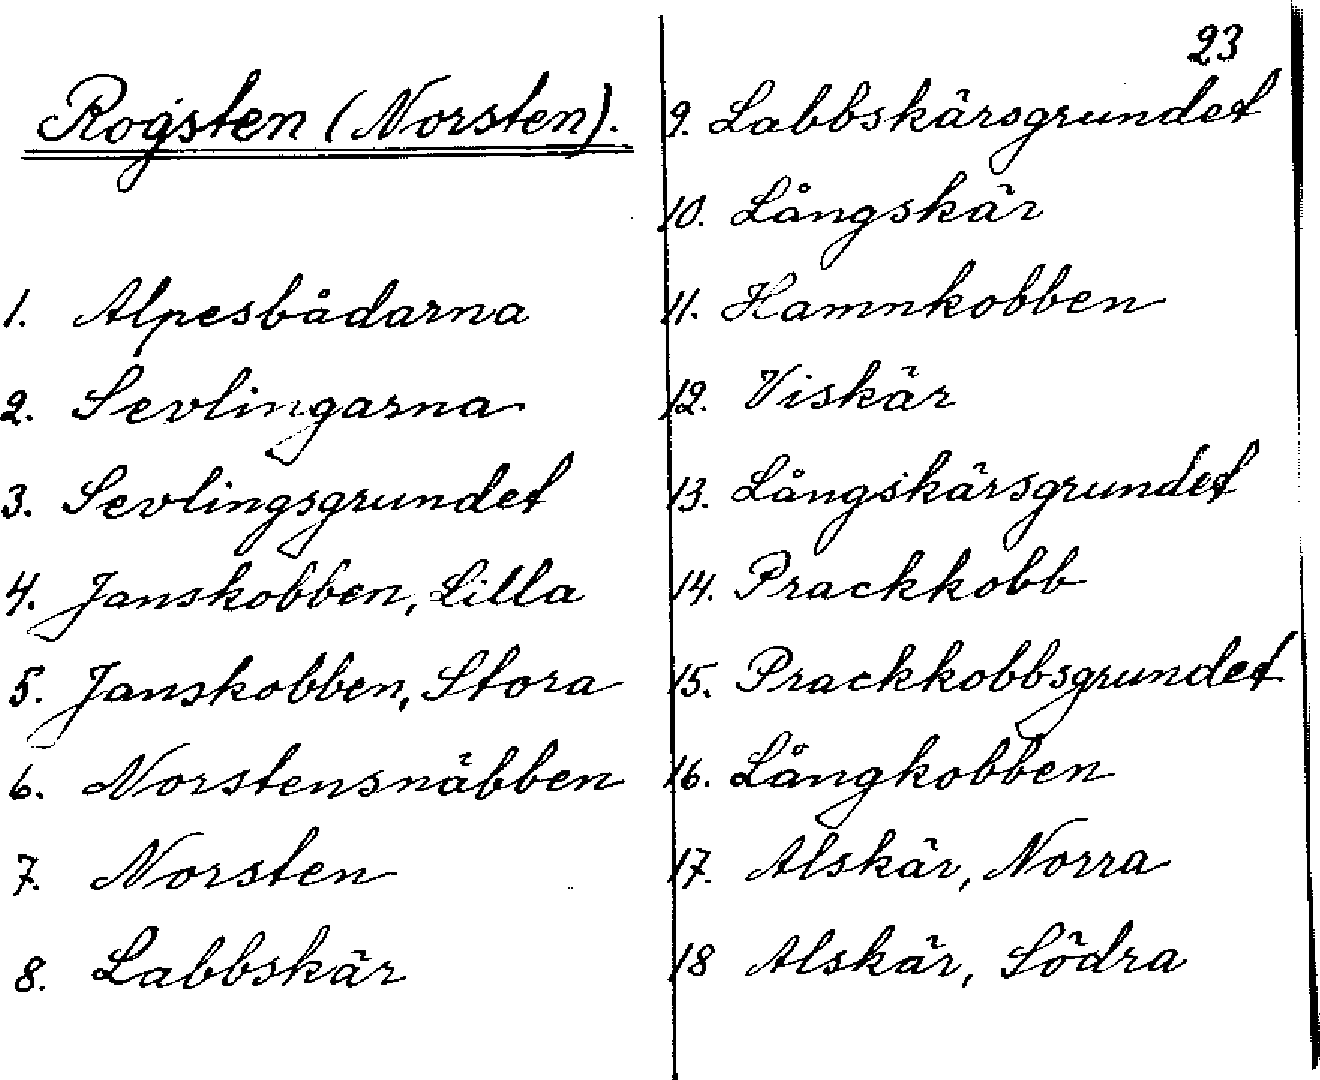 23
Rogsten (Norsten).
1. Alpesbådarna
2. Sevlingarna
3. Sevlingsgrundet
4. Janskobben, Lilla
5. Janskobben, Stora
6. Norstensnäbben
7. Norsten
8. Labbskär
9. Labbskärsgrundet
10. Långskär
11. Hamnkobben
12. Viskär
13. Långskärsgrundet
14. Prackkobb
15. Prackkobbsgrundet
16. Långkobben
17. Alskär, Norra
18 Alskär, Södra